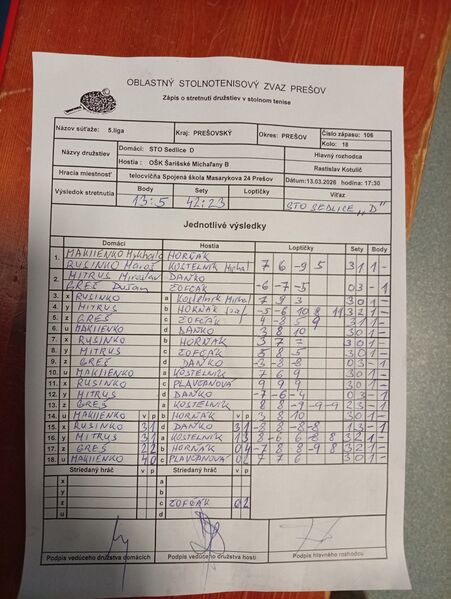 OBLASTNÝ STOLNOTENISOVÝ ZVAZ PREŠOV
Zápis o stretnutí družstiev v stolnom tenise
Názov súťaže: 5.liga Kraj: PREŠOVSKÝ Okres: PREŠOV Číslo zápasu: 106
Kolo: 18
Názvy družstiev Domáci: STO Sedlice D Hlavný rozhodca
Hostia: OŠK Šarišské Michaľany B Rastislav Kotulič
Hracia miestnosť telocvičňa Spojená škola Masarykova 24 Prešov Dátum:13.03.2026 hodina: 17:30
Výsledok stretnutia Body Sety Loptičky Víťaz
13:5 42:23 STO SEDLICE "D"
Jednotlivé výsledky
Domáci Hostia Loptičky Sety Body
1. MAKIIENKO HORŇÁK
RUSINKO Maroš KOSTELNÍK 7 6 -9 5 3 1 1 -
2. MITRUS Miroslav DANKO
GREŠ Dušan ZOFČÁK -6 -7 -5 0 3 - 1
3. x RUSINKO a KOSTELNÍK 7 9 3 3 0 1 -
4. y MITRUS b HORŇÁK -5 -6 10 8 11 3 2 1 -
5. z GREŠ c ZOFČÁK 4 -8 5 9 3 1 1 -
6. u MAKIIENKO d DANKO 3 8 10 3 0 1 -
7. x RUSINKO b HORŇÁK 3 7 7 3 0 1 -
8. y MITRUS c ZOFČÁK 5 8 5 3 0 1 -
9. z GREŠ d DANKO -3 -8 -8 0 3 - 1
10. u MAKIIENKO a KOSTELNÍK 7 6 9 3 0 1 -
11. x RUSINKO c PLAVČANOVÁ 9 9 9 3 0 1 -
12. y MITRUS d DANKO -7 -6 -4 0 3 - 1
13. z GREŠ a KOSTELNÍK 8 8 -9 -9 -9 2 3 - 1
14. u MAKIIENKO v p b HORŇÁK v p 3 8 10 3 0 1 -
15. x RUSINKO 3 1 d DANKO 3 1 -8 8 -8 -8 1 3 - 1
16. y MITRUS 3 1 a KOSTELNÍK 1 3 8 -6 6 -8 8 3 2 1 -
17. z GREŠ 2 2 b HORŇÁK 0 4 -7 8 8 -9 8 3 2 1 -
18. u MAKIIENKO 4 0 c PLAVČANOVÁ 0 2 7 7 6 3 0 1 -
Striedaný hráč v p Striedaný hráč v p
x a
y b
z c ZOFČÁK 0 2
u d
Podpis vedúceho družstva domácich Podpis vedúceho družstva hostí Podpis hlavného rozhodcu